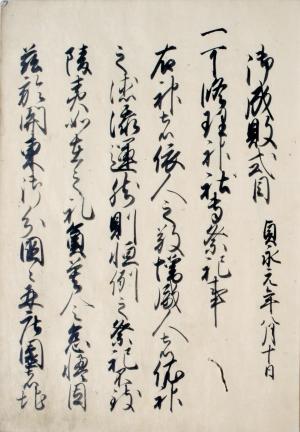 御成敗式目 貞永元年八月十日
一可修理神社専祭祀事
右神者依人之敬増威人者依神
之徳添運然則恒例之祭祀不致
陵夷如在之礼奠莫令怠慢因
茲於関東御分国々并庄園者地